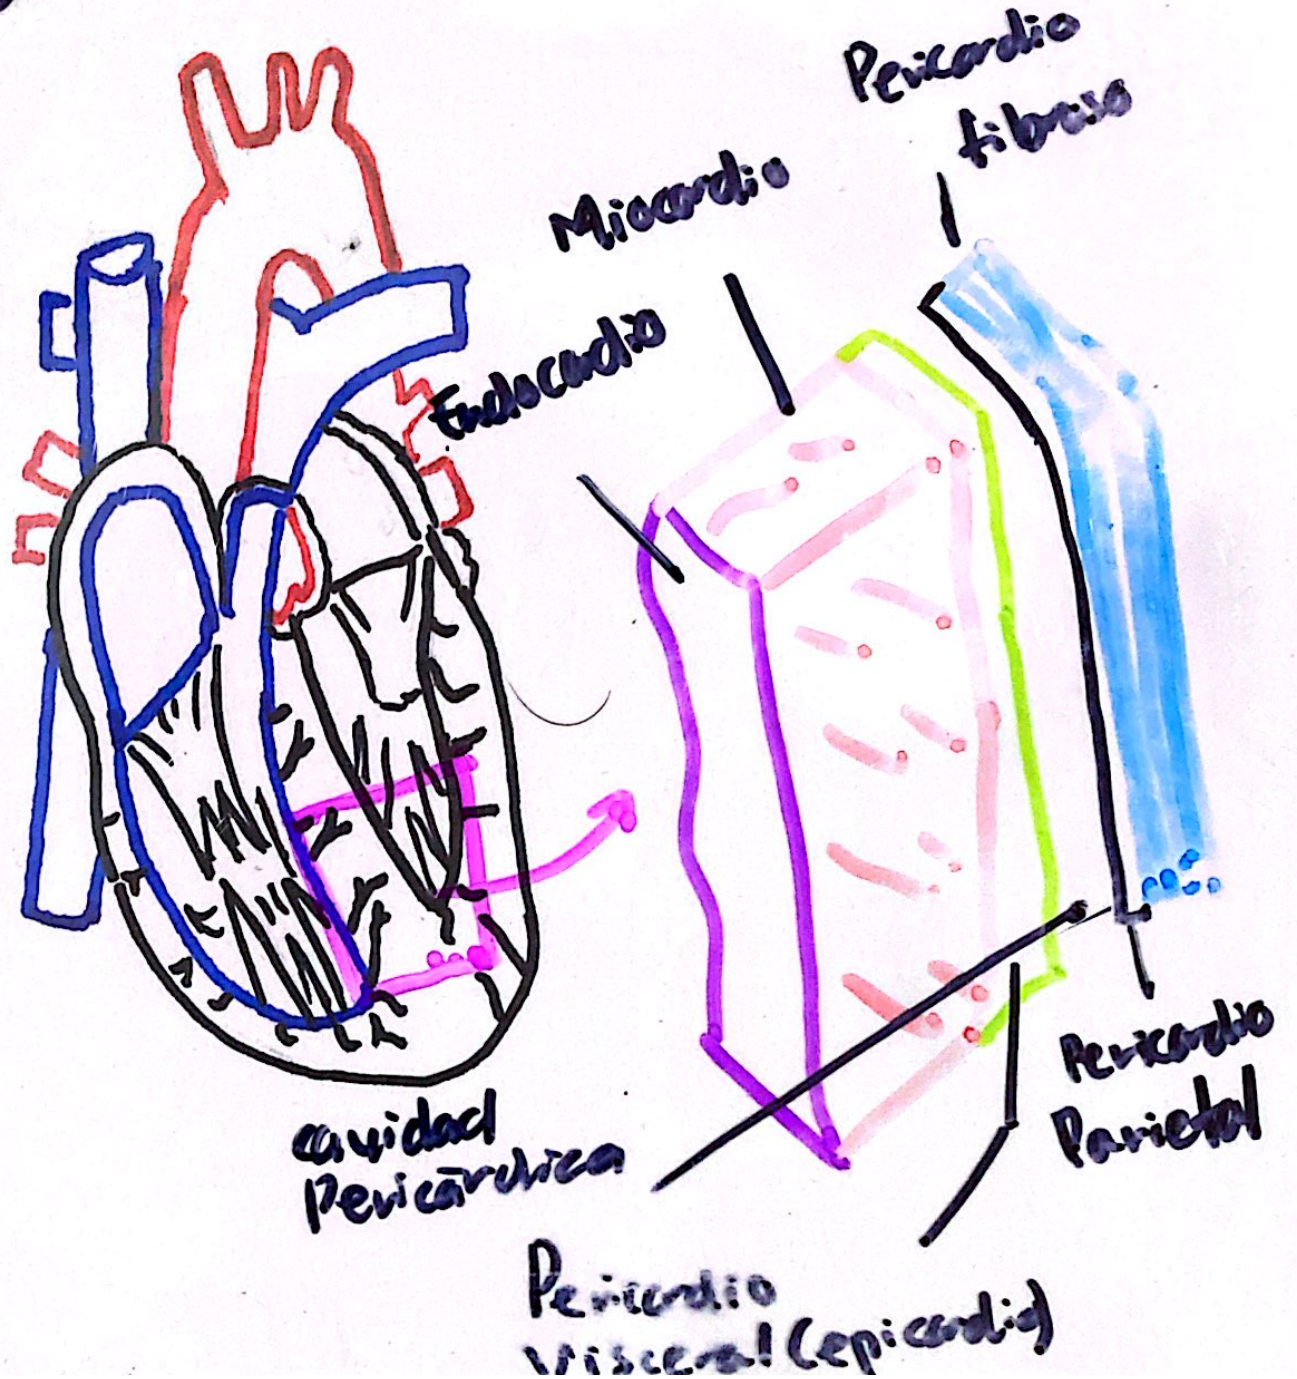 Pericardio
fibroso
Miocardio
Endocardio
Pericardio
Parietal
cavidad
Pericárdica
Pericardio
visceral (epicardio)